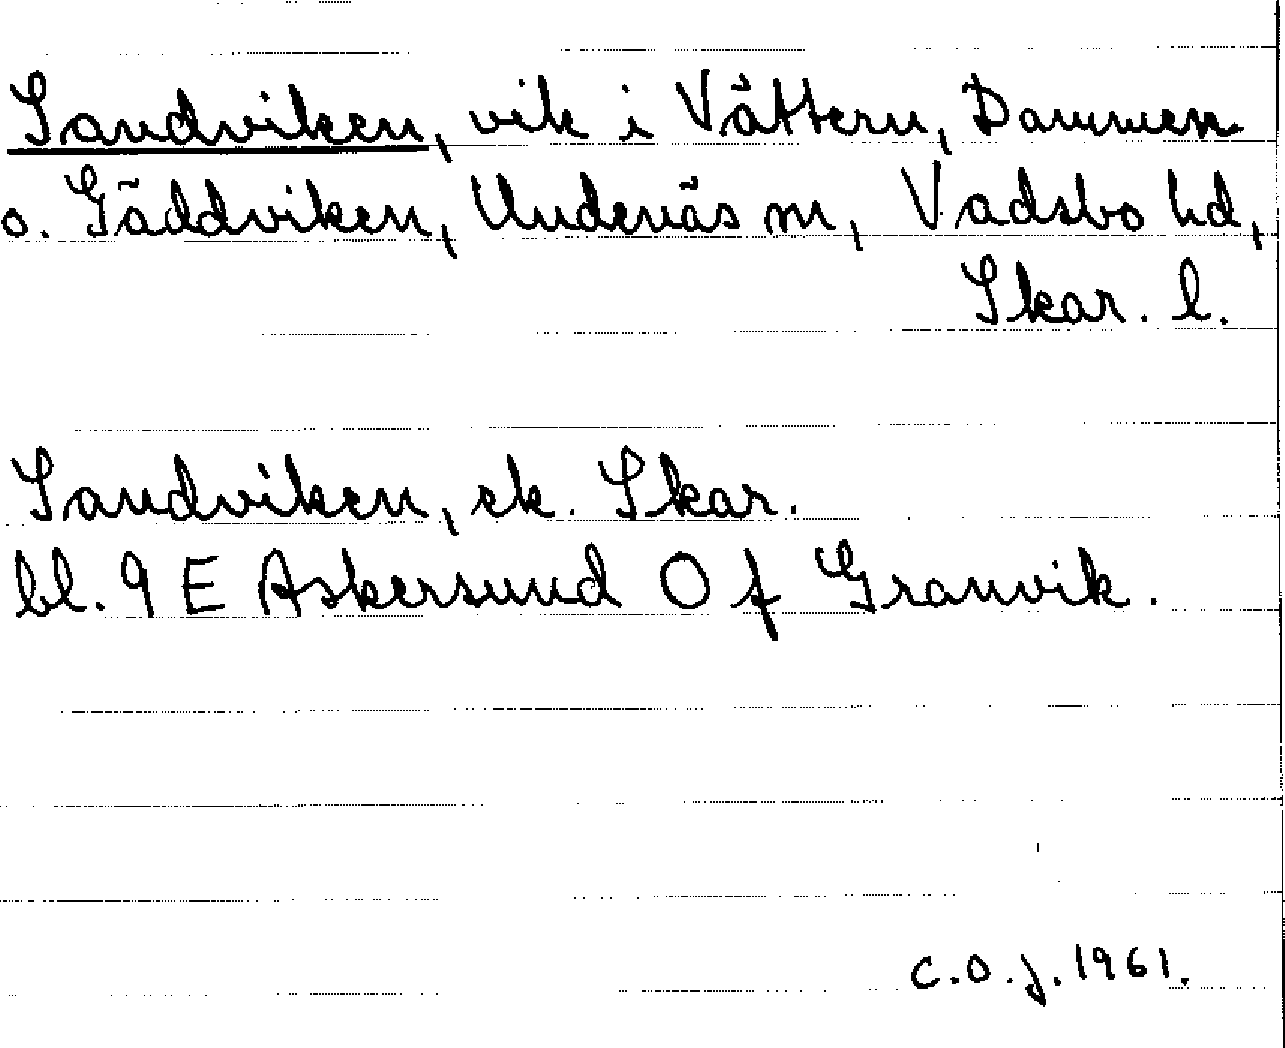 Sandviken, vik i Vättern, Dammen
o. Gäddviken, Undenäs sn, Vadsbo hd,
Skar. l.
Sandviken, ek. Skar.
bl. 9 E Askersund O f Granvik.
C.O.J. 1961.